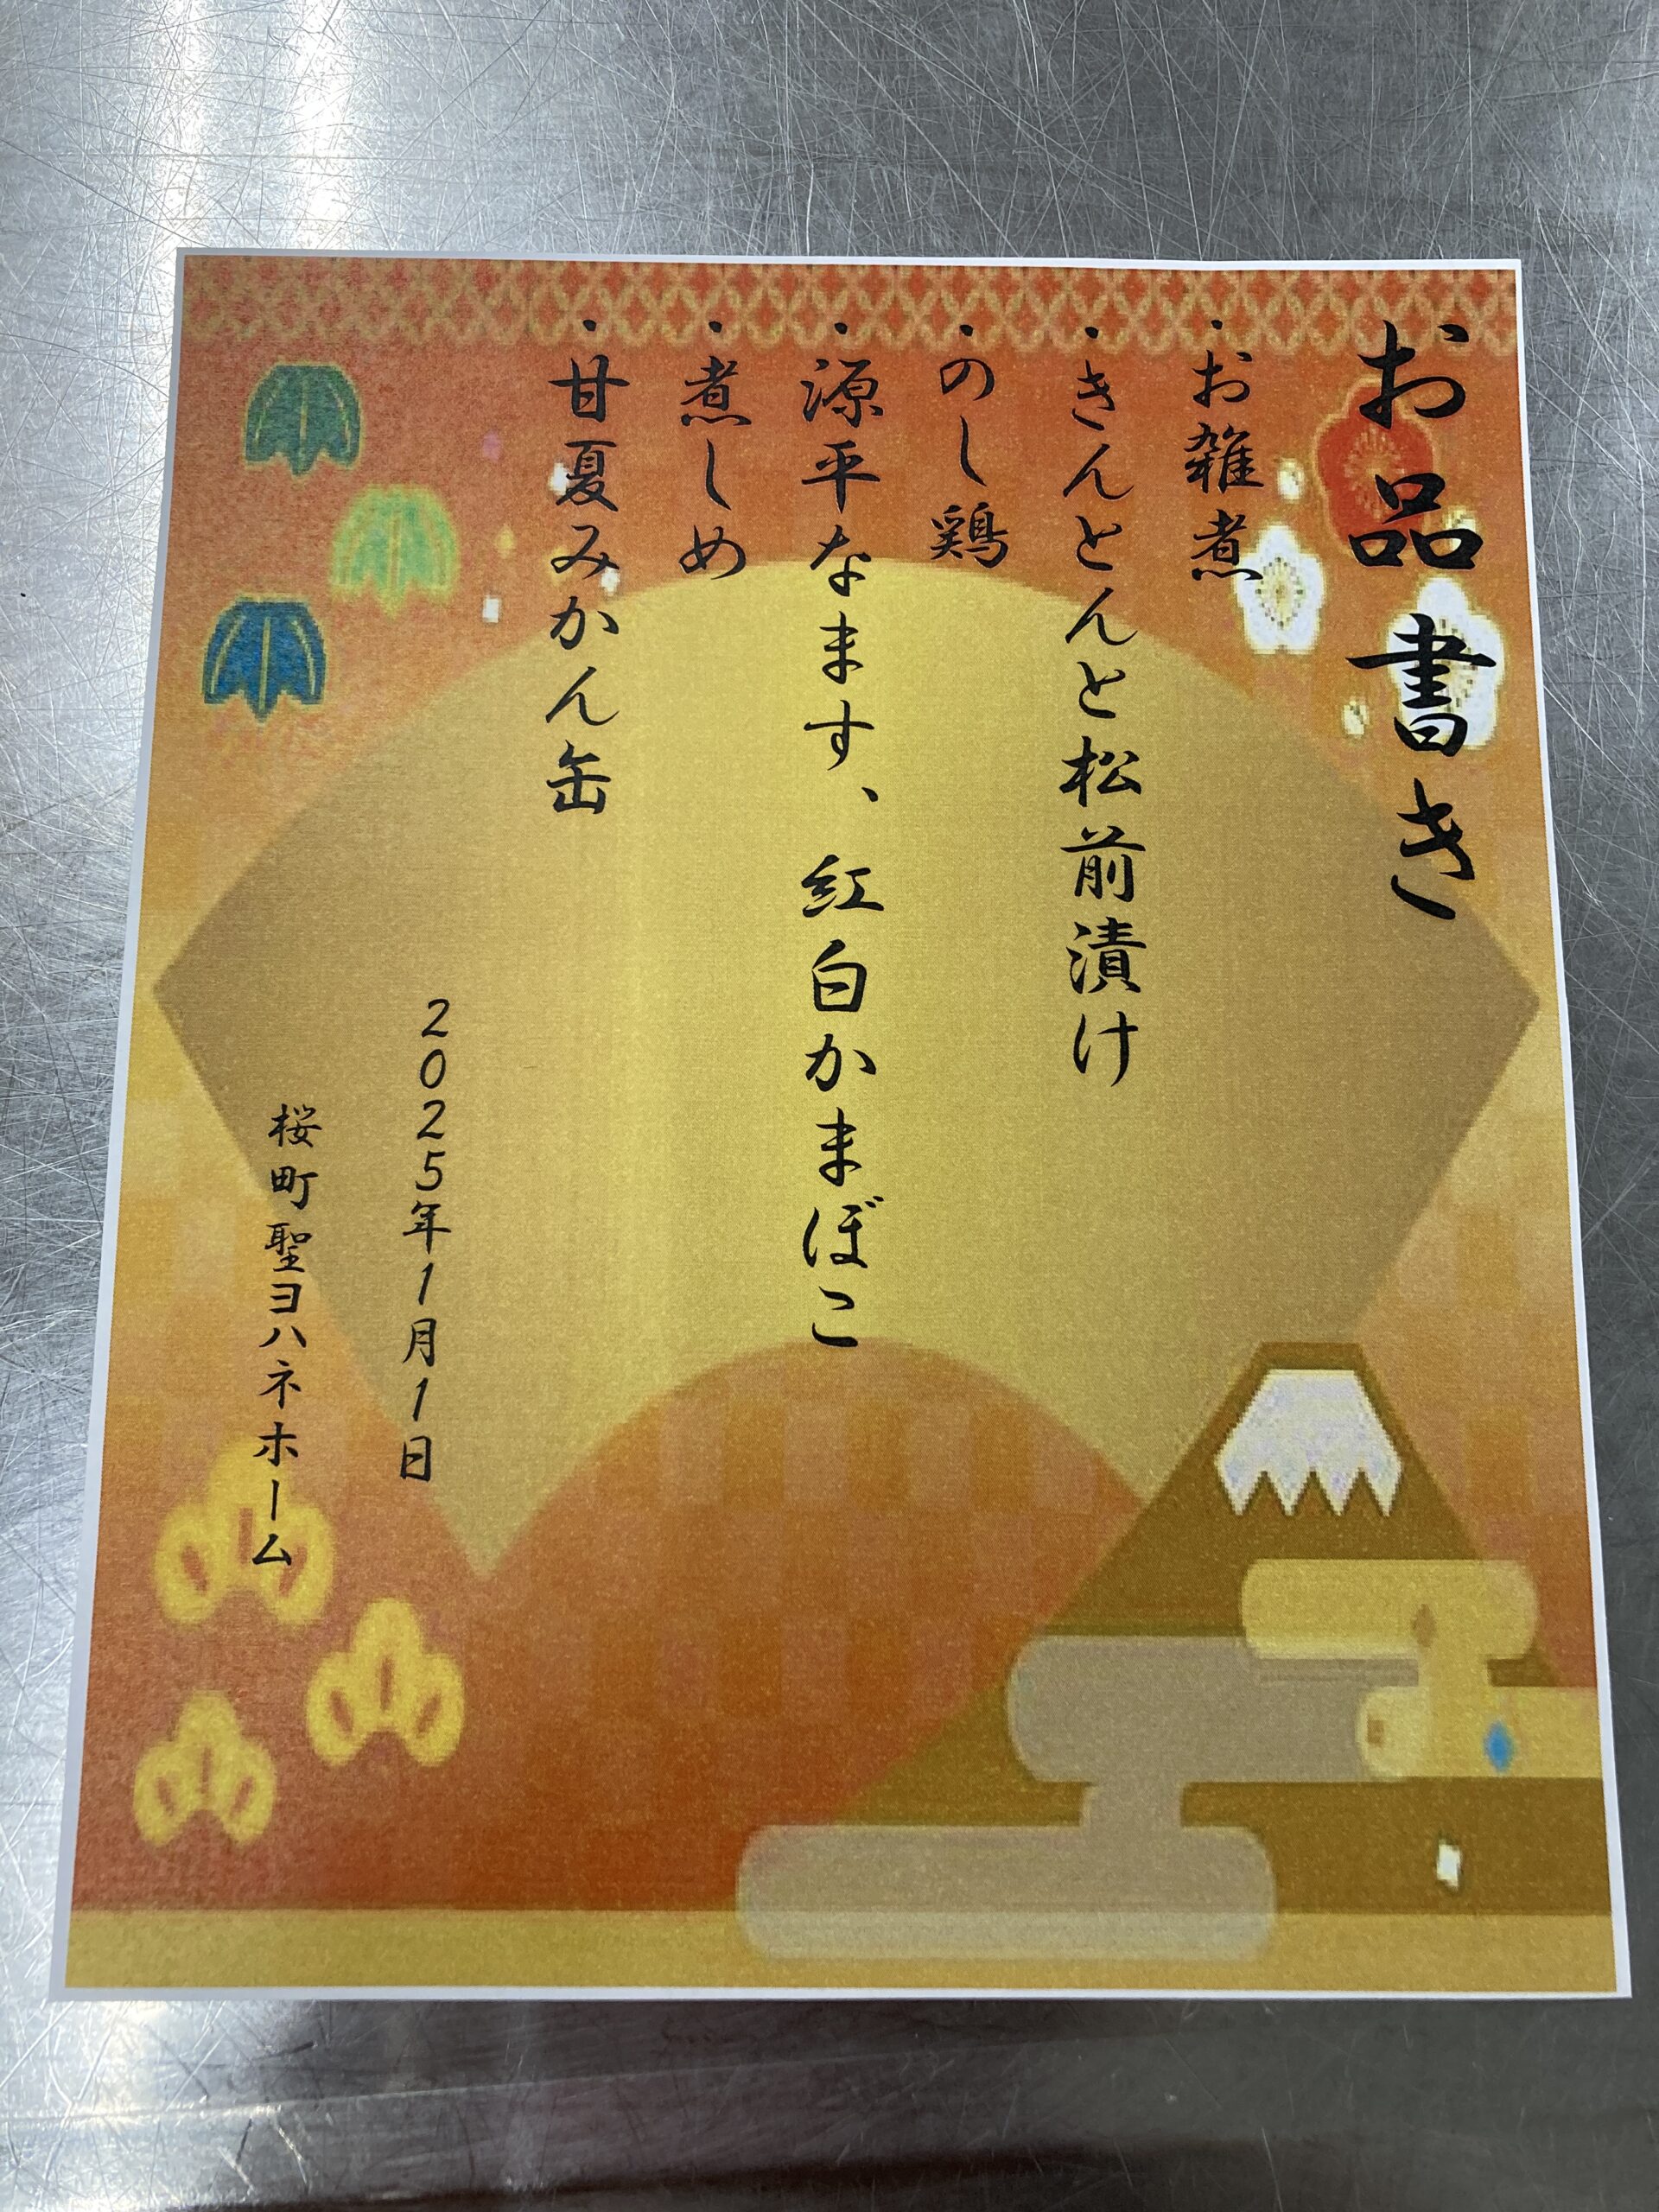 お品書き
・お雑煮
・きんとんと松前漬け
・のし鶏
・源平なます、紅白かまぼこ
・煮しめ
・甘夏みかん缶
2025年1月1日
桜町聖ヨハネホーム